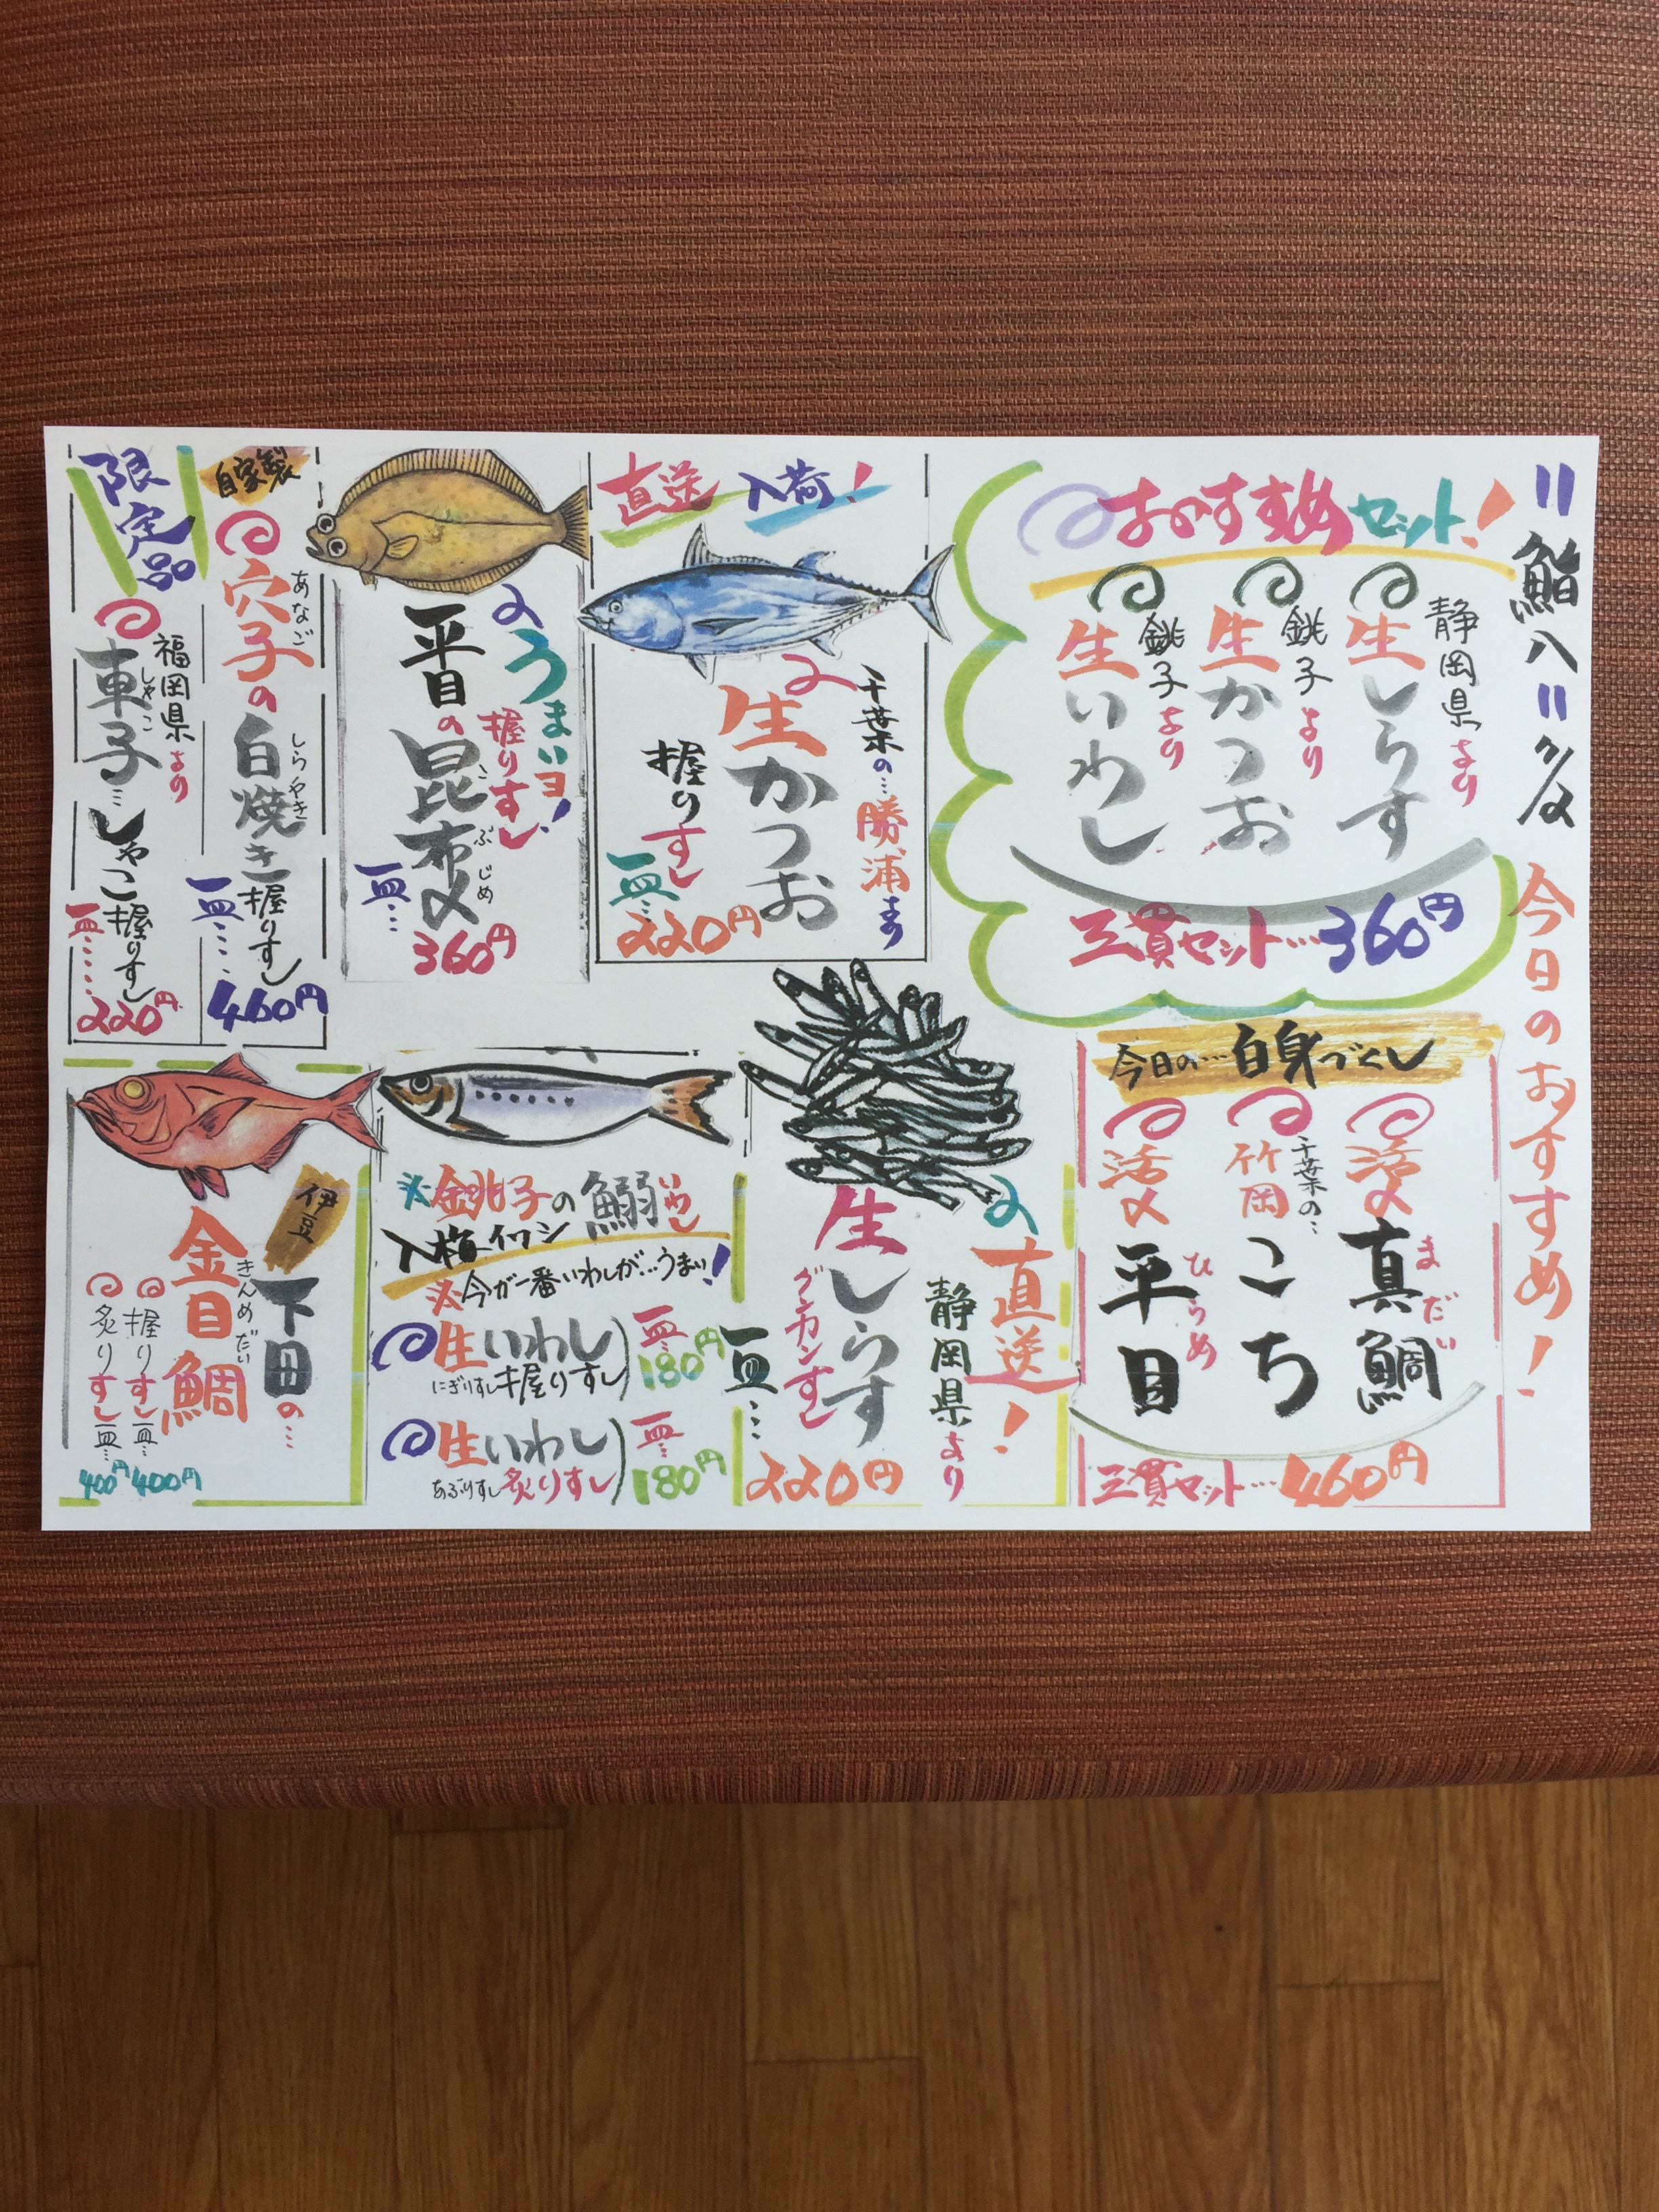 〃鮨八〃
今日のおすすめ!
おすすめセット!
静岡県より
生しらす
銚子より
生かつお
銚子より
生いわし
三貫セット…360円
直送入荷!
千葉の…勝浦より
生かつお
握りすし
一皿…
220円
うまいヨ!
握りすし
平目の昆布〆
こぶじめ
一皿…
360円
自家製
穴子の白焼き握りすし
あなご
しらやき
一皿…
460円
限定品
福岡県より
車子…しゃこ握りすし
しゃこ
一皿…
220円
今日の…白身づくし
活〆真鯛
まだい
千葉の…
竹岡こち
活〆平目
ひらめ
三貫セット…460円
直送!
静岡県より
生しらす
グンカンすし
一皿…
220円
※銚子の鰯
いわし
入梅イワシ
※今が一番いわしが…うまい!
生いわし
にぎりすし握りすし
一皿…
180円
生いわし
あぶりすし炙りすし
一皿…
180円
伊豆
下田の…
金目鯛
きんめだい
握りすし一皿…
400円
炙りすし一皿…
400円